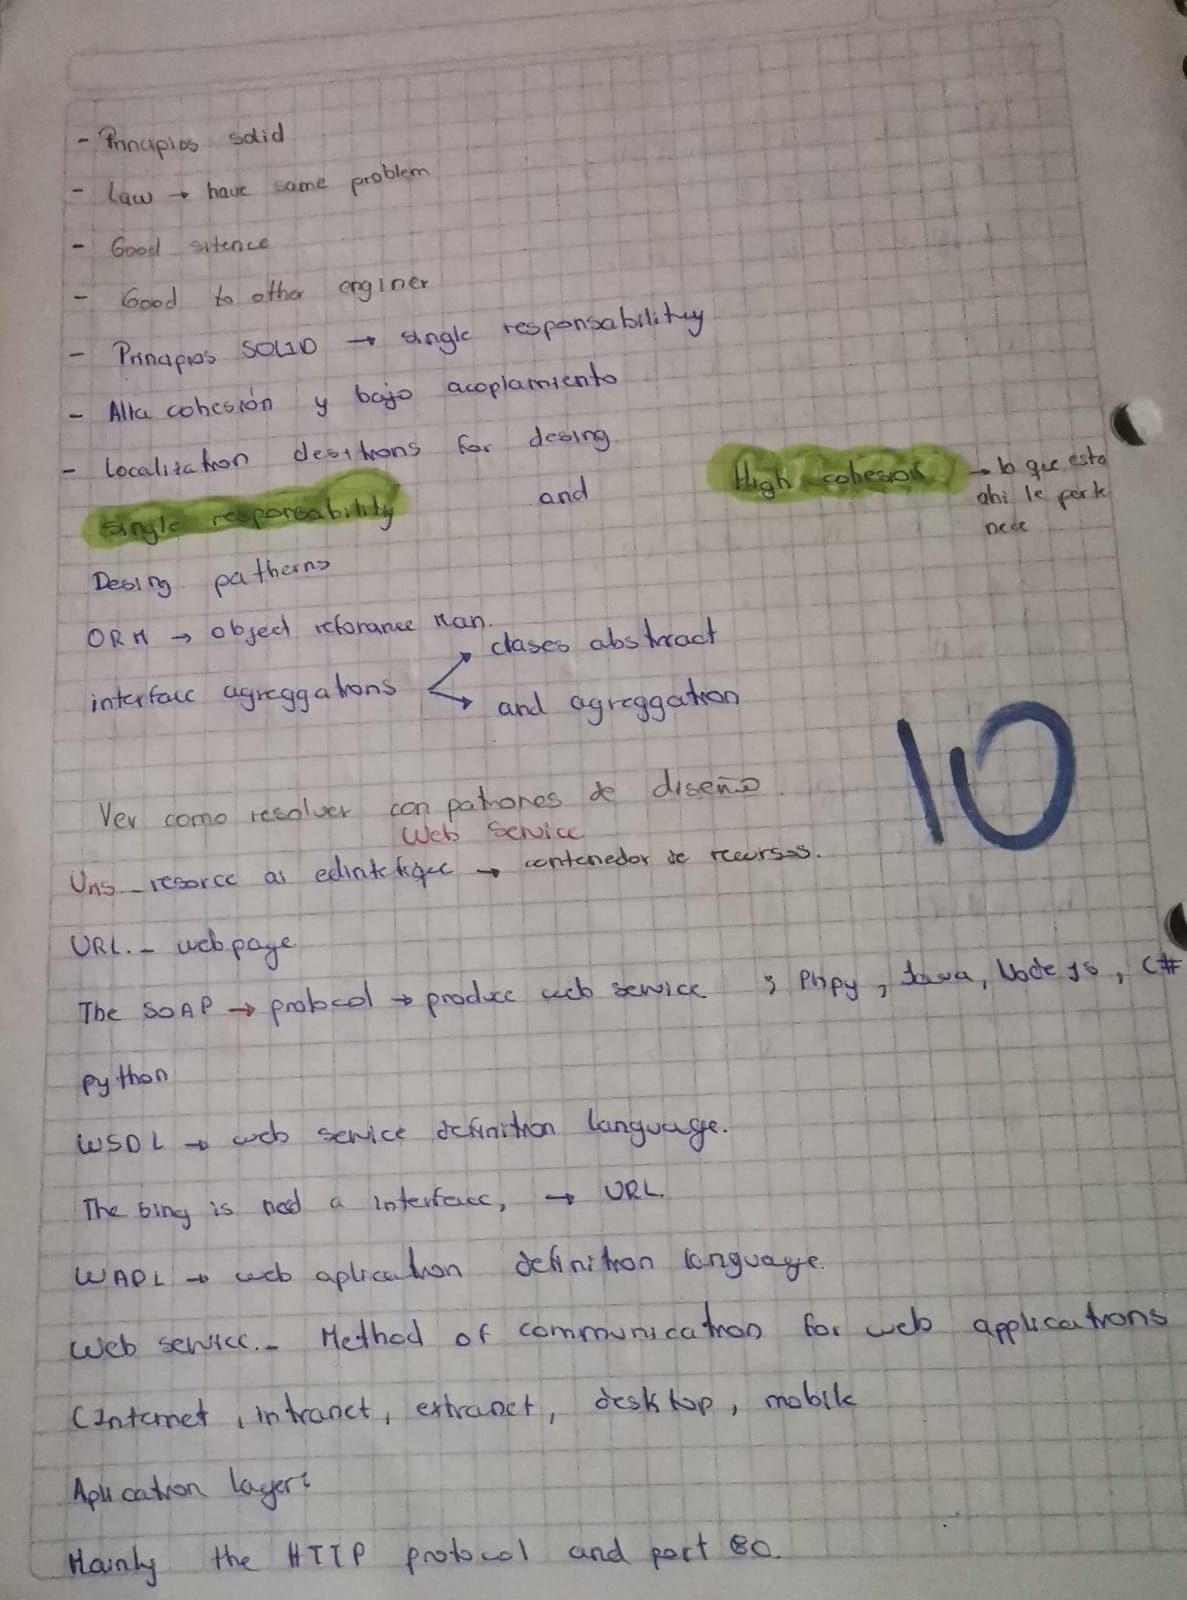 - Principios solid
- Law → have same problem
- Good sitence
- Good to other enginer
- Principios SOLID → single responsabilitity
- Alta cohesión y bajo acoplamiento
- Localization desitions for desing
single responsability and High cohesion → lo que esta
ahi le perte
nece
Desing patherns
ORM → object referance Man.
interface agreggations
clases abstract
and agreggation
10
Ver como resolver con patrones de diseño.
Web Service
resorce → contenedor de recursos.
URL.- webpage
The SOAP → protocol → produce web service ; Phpy, Java, Node js, C#
python
WSDL → web service definition language.
The bing is need a interface, → URL.
WADL → web aplication definition language.
Web service.- Method of communication for web applications
(Internet, intranet, extranet, desktop, mobile
Aplication layer:
Mainly the HTTP protocol and port 80.